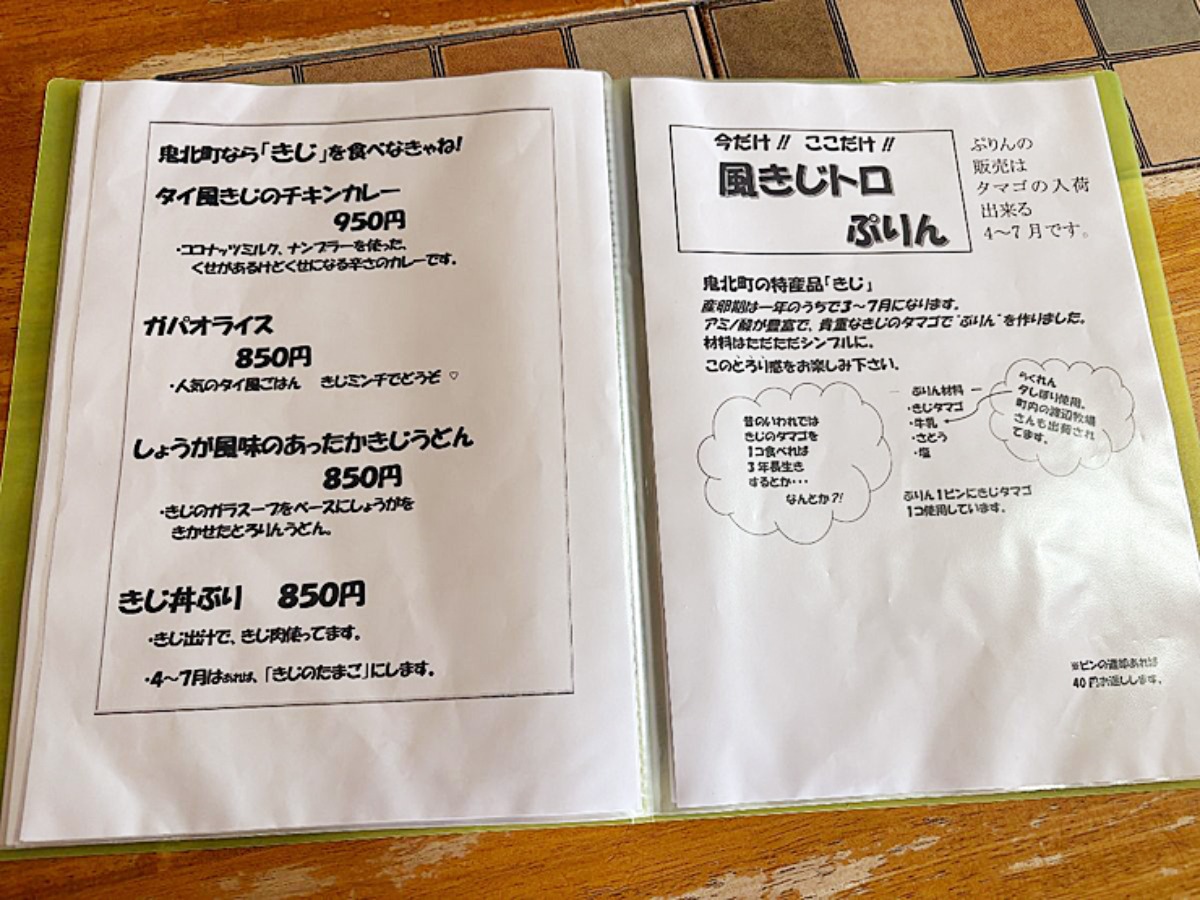 鬼北町なら「きじ」を食べなきゃね!
タイ風きじのチキンカレー
950円
・ココナッツミルク、ナンプラーを使った、
くせがあるけどくせになる辛さのカレーです。
ガパオライス
850円
・人気のタイ風ごはん きじミンチでどうぞ ♡
しょうが風味のあったかきじうどん
850円
・きじのガラスープをベースにしょうがを
きかせたとろりんうどん。
きじ丼ぶり 850円
・きじ出汁で、きじ肉使ってます。
・4～7月はあれば、「きじのたまご」にします。
今だけ!! ここだけ!!
風きじトロ
ぷりん
ぷりんの
販売は
タマゴの入荷
出来る
4～7月です。
鬼北町の特産品「きじ」
産卵期は一年のうちで3～7月になります。
アミノ酸が豊富で、貴重なきじのタマゴで"ぷりん"を作りました。
材料はただただシンプルに。
このとろり感をお楽しみ下さい。
昔のいわれでは
きじのタマゴを
1コ食べれば
3年長生き
するとか・・・
なんとか?!
ぷりん材料
・きじタマゴ
・牛乳
・さとう
・塩
らくれん
夕しぼり使用。
町内の渡辺牧場
さんも出荷され
てます。
ぷりん1ビンにきじタマゴ
1コ使用しています。
※ビンの返却あれば
40円お返しします。